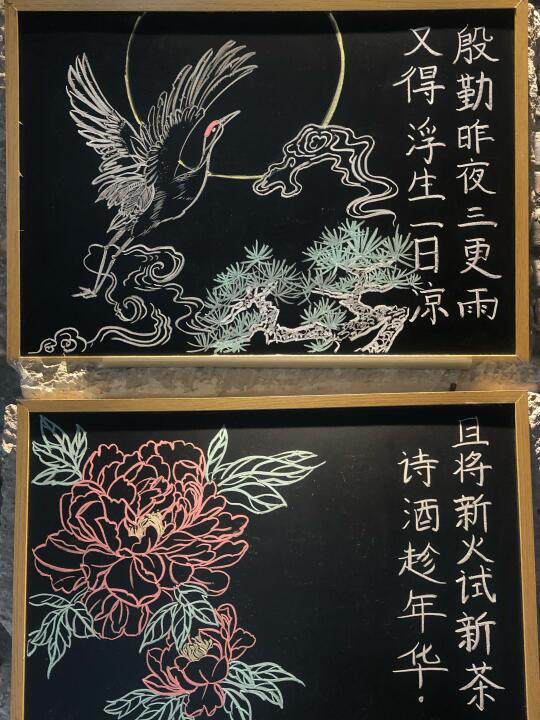 殷勤昨夜三更雨
又得浮生一日凉
且将新火试新茶
诗酒趁年华.